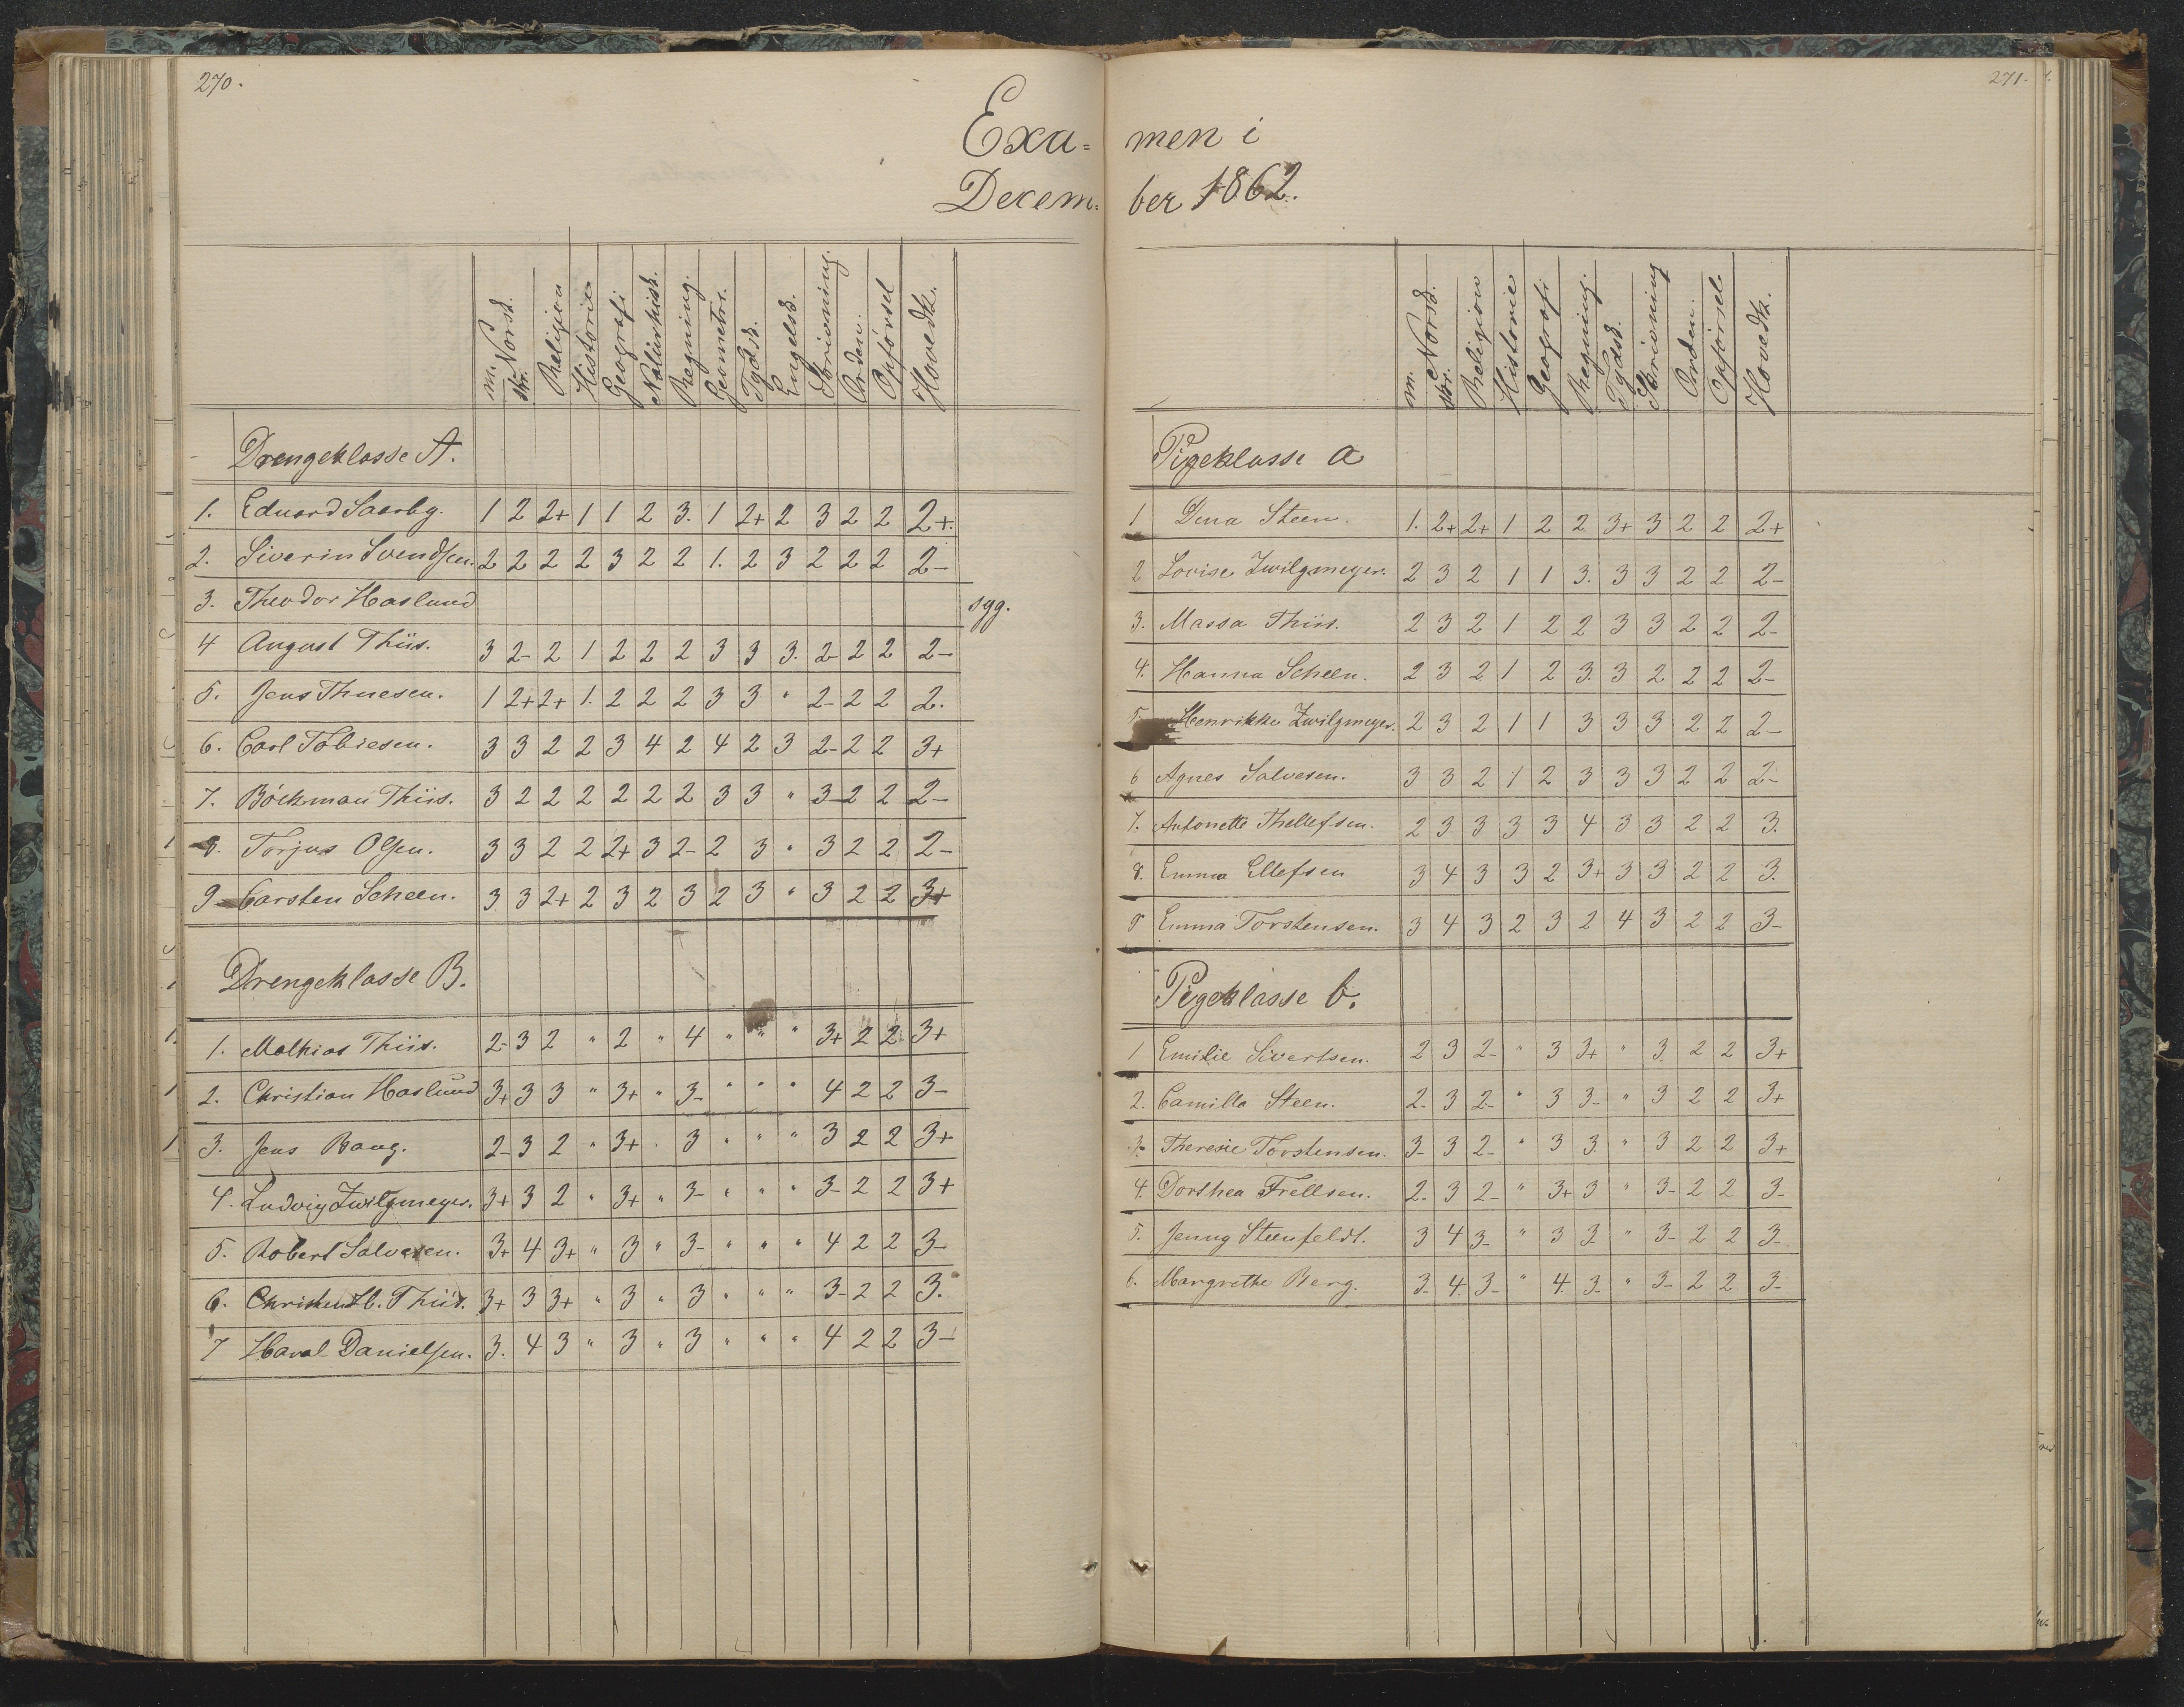 270.
Exa=
Decem=
m. Norsk. skr. Religion Historie Geografi Naturhist. Regning. Geometri. Tydsk. Engelsk. Skrivning. Orden. Opførsel Hovedk.
Drengeklasse A.
1. Eduard Saxebg. 1 2 2+ 1 1 2 3. 1 2+ 2 3 2 2 2+.
2. Siverin Svendsen. 2 2 2 2 3 2 2 1. 2 3 2 2 2 2-
3. Theodor Haslund syg.
4 August Thiis. 3 2- 2 1 2 2 2 3 3 3. 2- 2 2 2-
5. Jens Thuesen. 1 2+ 2+ 1. 2 2 2 3 3 " 2- 2 2 2.
6. Carl Tobiesen. 3 3 2 2 3 4 2 4 2 3 2- 2 2 3+
7. Böckman Thiis. 3 2 2 2 2 2 2 3 3 " 3- 2 2 2-
8. Torjus Olsen. 3 3 2 2 2+ 3 2- 2 3 " 3 2 2 2-
9 Carsten Scheen. 3 3 2+ 2 3 2 3 2 3 " 3 2 2 3+
Drengeklasse B.
1. Mathias Thiis. 2- 3 2 " 2 " 4 " " " 3+ 2 2 3+
2. Christian Haslund 3+ 3 3 " 3+ " 3- " " " 4 2 2 3-
3. Jens Bang. 2- 3 2 " 3+ " 3 " " " 3 2 2 3+
4. Ludvig Zwilgmeyer. 3+ 3 2 " 3+ " 3- " " " 3- 2 2 3+
5. Robert Salvesen. 3+ 4 3+ " 3 " 3- " " " 4 2 2 3-
6. Christen H. Thiis. 3+ 3 3+ " 3 " 3 " " " 3- 2 2 3.
7 Haral Danielsen. 3. 4 3 " 3 " 3 " " " 4 2 2 3-
271.
men i
ber 1862.
m. Norsk. skr. Religion Historie Geografi Regning. Tydsk. Skrivning Orden. Opførsel Hovedk.
Pigeklasse a
1 Dina Steen. 1. 2+ 2+ 1 2 2 3+ 3 2 2 2+
2 Lovise Zwilgmeyer. 2 3 2 1 1 3. 3 3 2 2 2-
3. Massa Thiis. 2 3 2 1 2 2 3 3 2 2 2-
4. Hanna Scheen. 2 3 2 1 2 3. 3 2 2 2 2-
5. Henrikke Zwilgmeyer. 2 3 2 1 1 3 3 3 2 2 2-
6 Agnes Salvesen. 3 3 2 1 2 3 3 3 2 2 2-
7. Antonette Thellefsen. 2 3 3 3 3 4 3 3 2 2 3.
8. Emma Ellefsen 3 4 3 3 2 3+ 3 3 2 2 3.
9 Emma Torstensen. 3 4 3 2 3 2 4 3 2 2 3-
Pigeklasse b.
1 Emilie Sivertsen. 2 3 2- " 3 3+ " 3 2 2 3+
2. Camilla Steen. 2- 3 2- " 3 3- " 3 2 2 3+
3. Theresie Torstensen. 3- 3 2- " 3 3. " 3 2 2 3+
4. Dorthea Frellsen. 2- 3 2- " 3+ 3 " 3- 2 2 3-
5. Jenny Steenfeldt. 3 4 3- " 3 3- " 3- 2 2 3-
6. Margrethe Berg. 3- 4. 3- " 4. 3- " 3- 2 2 3-